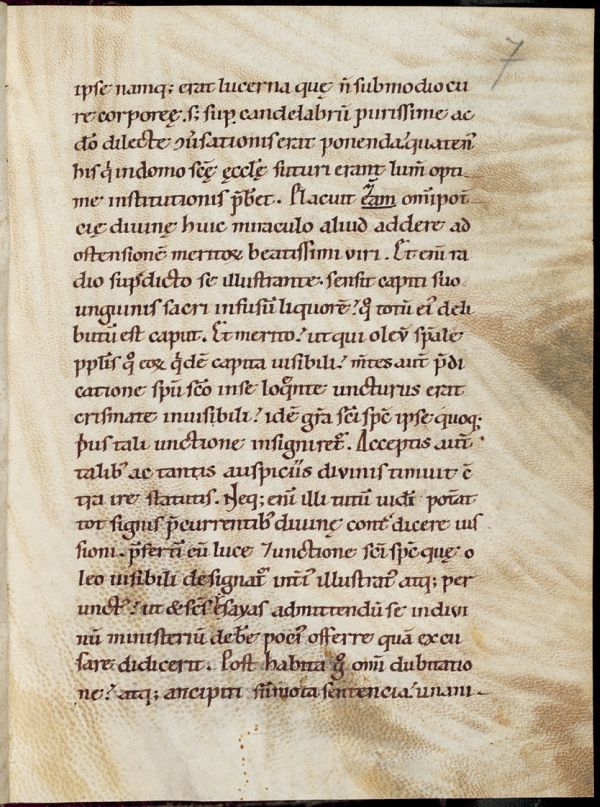 7
ipse namq; erat lucerna quę n̄ submodio cu
re corporeę. s; sup candelabrū purissime ac
dō dilecte ɔ̄usationis erat ponenda. quaten᷒
his q̇ indomo scę̄ ęcclę̄ futuri erant lum̄ opti
me institutionis p̄bet. Placuit &iam omīpot̄
cię diuinę huic miraculo aliud addere ad
ostensionē meritoꝝ beatissimi uiri. Et enī ra
dio sup̄dicto se illustrante. sensit capiti suo
unguinis sacri infusū liquorē. totū ei᷒ deli
butū est caput. Et merito. ut qui oleū sp̄ale
eoꝝ q̇dē capita uisibili. m̄tes aut̄ p̄di
catione sp̄u sc̄o inse loq̄nte uncturus erat
crismate inuisibili. idē gr̄a sc̄i sp̄c ipse quoq;
p᷒us tali unctione insignir&᷒. Acceptis aut̄
talib᷒ ac tantis auspiciis diuinis timuit ē
tra ire statutis. Neq; enī illi tutū uidi potat᷒
tot signis p̄currentib᷒ diuinę cont᷒dicere uis
sioni. p̄sertī cū luce ⁊ unctione sc̄i sp̄c quę o
leo uisibili designat᷒ int᷒i᷒ illustrat᷒ atq; per
unct᷒. ut & sc̄s Esayas admittendū se indiui
nū ministeriū deb̄e poci᷒ offerre quā excu
sare didicerit. Post habita g᷒ omī dubitatio
ne. atq; ancipiti sūmota sentencia. unani-